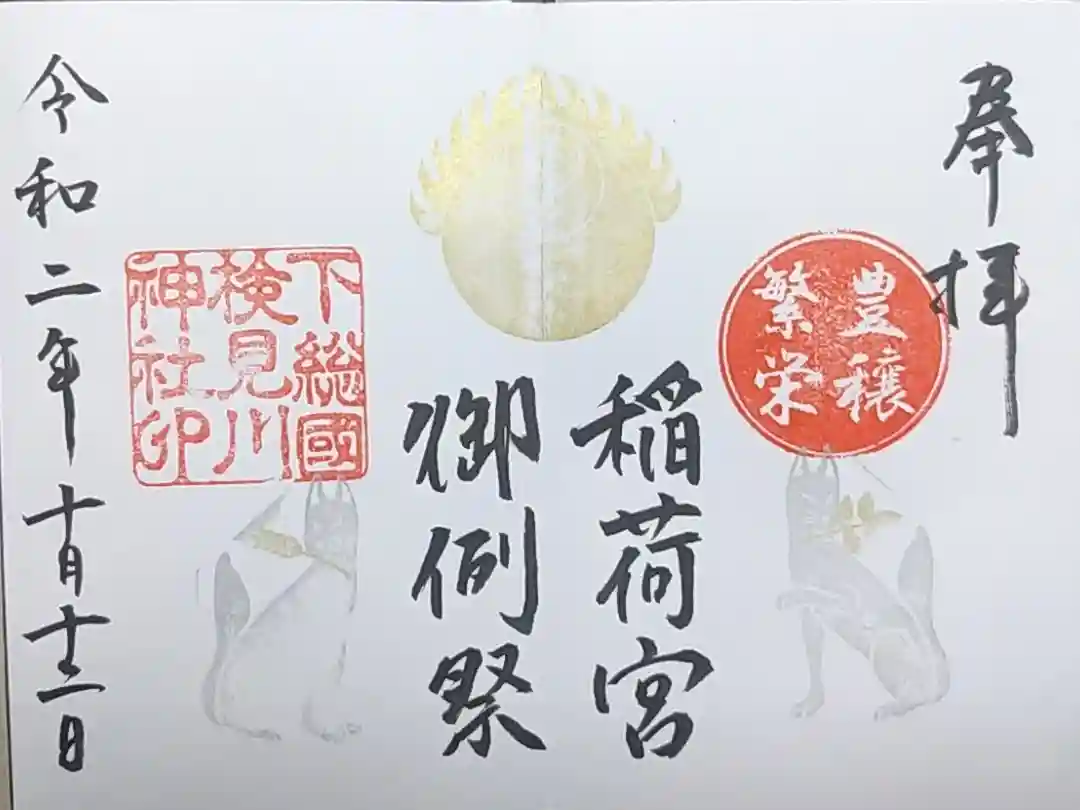 奉拝
豊穣
繁栄
稲荷宮
御例祭
下総國
検見川
神社印
令和二年十月十二日